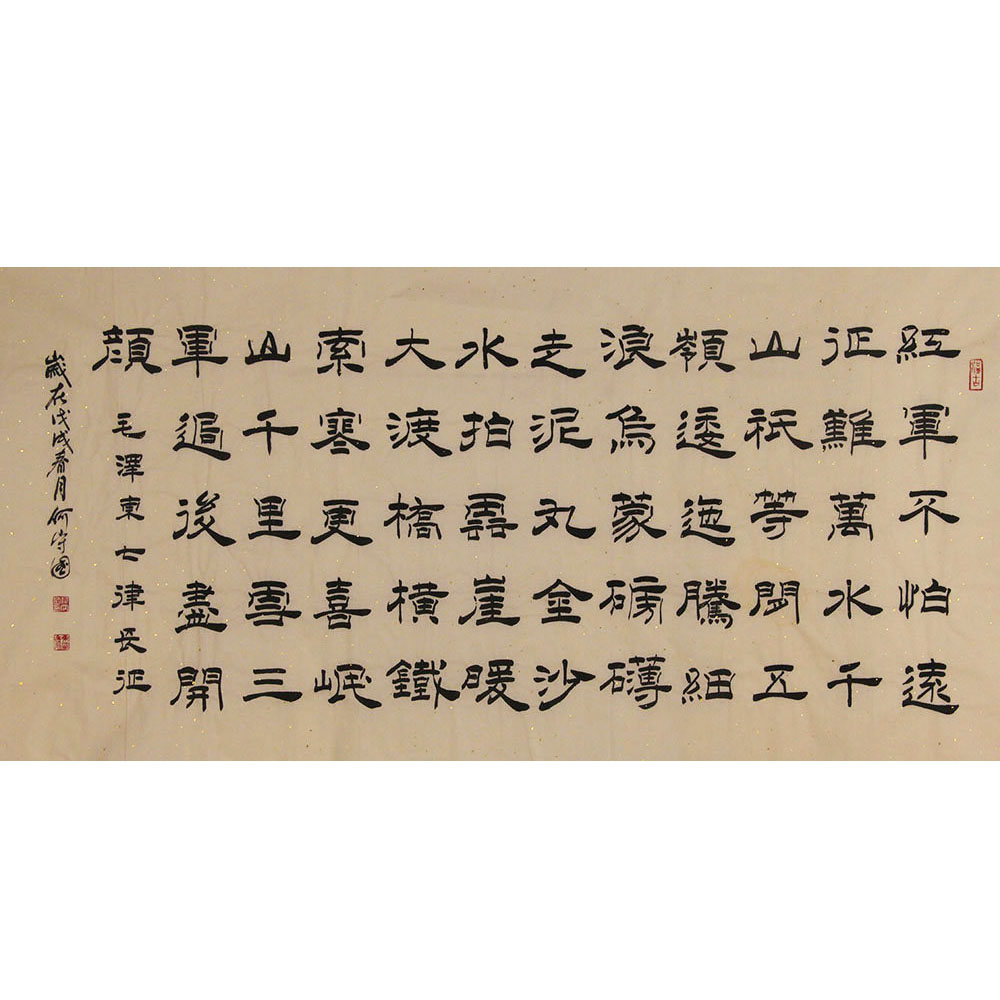 紅軍不怕遠
征難萬水千
山祇等閒五
嶺逶迤騰細
浪烏蒙磅礴
走泥丸金沙
水拍雲崖暖
大渡橋橫鐵
索寒更喜岷
山千里雪三
軍過後盡開
顏 毛澤東七律長征
歲在戊戌春月何守國